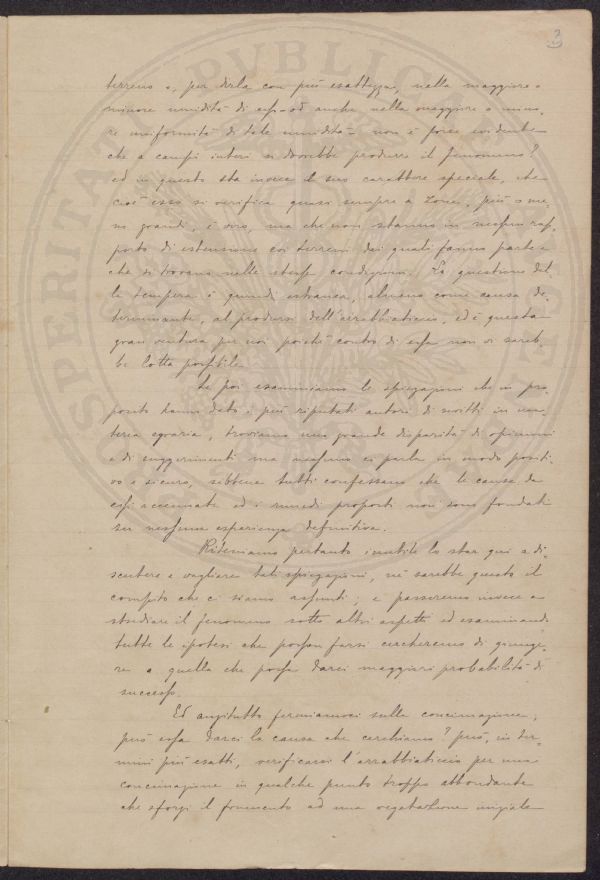 3
terreno o, per dirla con più esattezza, nella maggiore o
minore umidità di esso od anche nella maggiore o mino-
re uniformità di tale umidità non è forse evidente
che a campi interi si dovrebbe produrre il fenomeno?
ed in questo sta invece il suo carattere speciale, che
cioè esso si verifica quasi sempre a zone, più o me-
no grandi, è vero, ma che non stanno in nessun rap-
porto di estensione coi terreni dei quali fanno parte e
che si trovano nelle stesse condizioni. La questione del-
la tempera è quindi estranea, almeno come causa de-
terminante, al prodursi dell'arrabbiaticcio, ed è questa
gran ventura per noi poichè contro di essa non vi sareb-
be lotta possibile.
Se poi esaminiamo le spiegazioni che in pro-
posito hanno dato i più reputati autori di scritti in ma-
teria agraria, troviamo una grande disparità di opinioni
e di suggerimenti ma nessuno ci parla in modo positi-
vo e sicuro, sebbene tutti confessano che le cause da
essi accennate ed i rimedi proposti non sono fondati
su nessuna esperienza definitiva.
Riteniamo pertanto inutile lo star qui a di-
scutere e vagliare tali spiegazioni, nè sarebbe questo il
compito che ci siamo assunti; e passeremo invece a
studiare il fenomeno sotto altri aspetti ed esaminando
tutte le ipotesi che possan farsi cercheremo di giunge-
re a quella che possa darci maggiori probabilità di
successo.
Ed anzitutto fermiamoci sulla concimazione;
può essa darci la causa che cerchiamo? può, in ter-
mini più esatti, verificarsi l'arrabbiaticcio per una
concimazione in qualche punto troppo abbondante
che sforzi il frumento ad una vegetazione iniziale